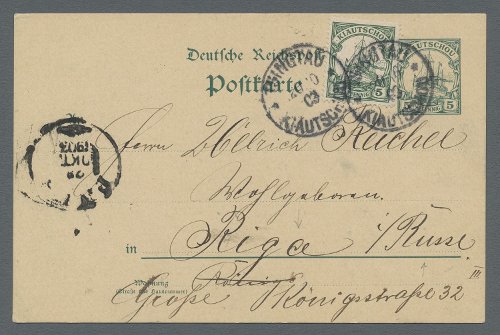 Deutsche Reichspost
Postkarte
KIAUTSCHOU
5
KIAUTSCHOU
5
TSINGTAU
10
03
KIAUTSCHOU
TSINGTAU
KIAUTSCHOU
1903
ОКТ
Herrn Ullrich Reichel
Wohlgeboren.
in Riga i/Russl
Wohnung
(Straße und Hausnummer)
Große Königsstraße 32 III